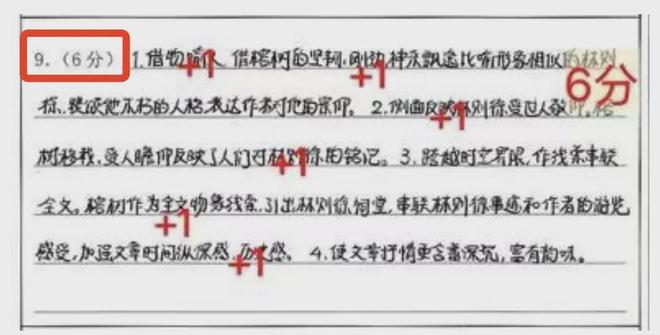 9.(6分) 1.借物喻人、借榕树的坚韧、刚劲、神采飘逸比喻形象相似的林则
徐、赞颂他不朽的人格,表达作者对他的崇仰。 2.侧面反映林则徐受过人敬仰,榕
树移栽,受人瞻仰反映了人们对林则徐的铭记。 3.跨越时空界限,作线索串联
全文。榕树作为全文物象线索,引出林则徐祠堂,串联林则徐事迹和作者的游览
感受,加强文章时间纵深感、历史感。 4.使文章抒情更含蓄深沉,富有韵味。
+1
+1
6分
+1
+1
+1
+1